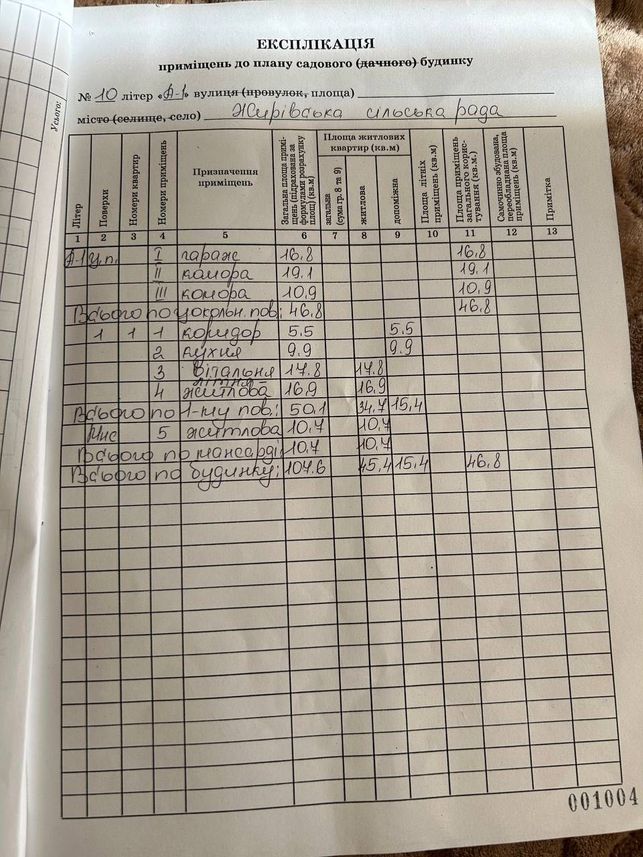 Усього:
ЕКСПЛІКАЦІЯ
приміщень до плану садового (дачного) будинку
№ 10 літер «А-1» вулиця (провулок, площа)
місто (селище, село) Жирівська сільська рада
Літер Поверхи Номери квартир Номери приміщень Призначення приміщень Загальна площа приміщень (підрахована за формулами розрахунку площ) (кв.м) Площа житлових квартир (кв.м) загальна (сума гр. 8 та 9) житлова допоміжна Площа літніх приміщень (кв.м) Площа приміщень загального користування (кв.м.) Самочинно збудована, переобладнана площа приміщень (кв.м) Примітка
1 2 3 4 5 6 7 8 9 10 11 12 13
А-1 ц.п. I гараж 16.8 16.8
II комора 19.1 19.1
III комора 10.9 10.9
Всього по цокольн. пов.: 46.8 46.8
1 1 1 коридор 5.5 5.5
2 кухня 9.9 9.9
3 вітальня 17.8 17.8
4 житлова 16.9 16.9
Всього по 1-му пов.: 50.1 34.7 15.4
Мнс 5 житлова 10.7 10.7
Всього по мансарді: 10.7 10.7
Всього по будинку: 107.6 45.4 15.4 46.8
001004